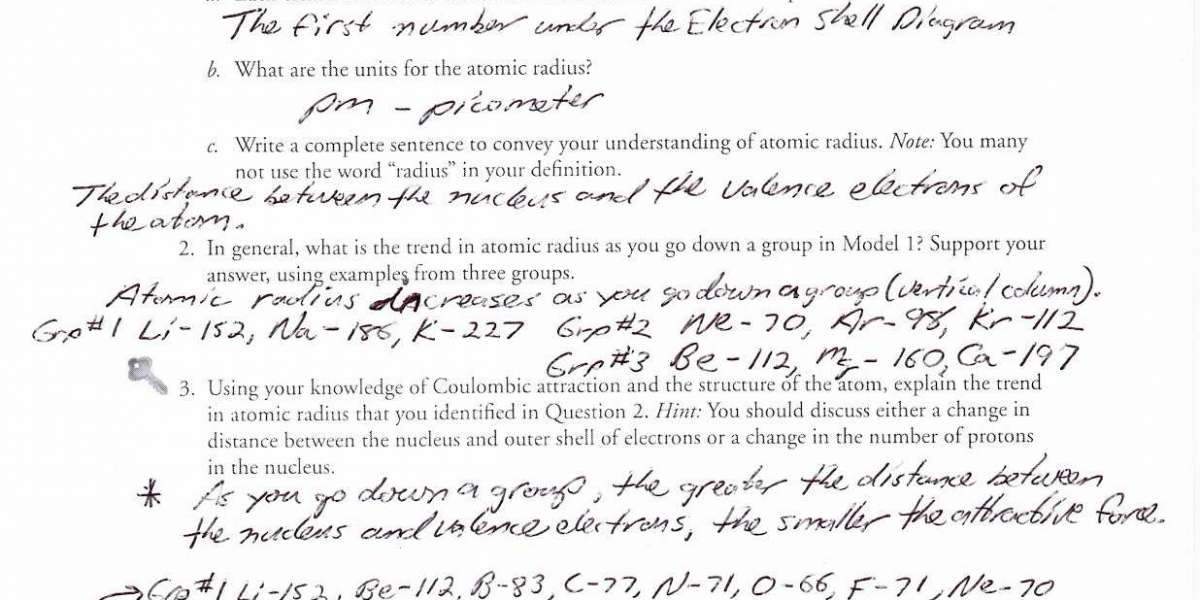 The first number under the Electron Shell Diagram
b. What are the units for the atomic radius?
pm - picometer
c. Write a complete sentence to convey your understanding of atomic radius. Note: You many
not use the word “radius” in your definition.
The distance between the nucleus and the valence electrons of
the atom.
2. In general, what is the trend in atomic radius as you go down a group in Model 1? Support your
answer, using examples from three groups.
Atomic radius increases as you go down a group (vertical column).
Grp#1 Li-152, Na-186, K-227 Grp#2 Ne-70, Ar-98, Kr-112
Grp#3 Be-112, Mg-160, Ca-197
3. Using your knowledge of Coulombic attraction and the structure of the atom, explain the trend
in atomic radius that you identified in Question 2. Hint: You should discuss either a change in
distance between the nucleus and outer shell of electrons or a change in the number of protons
in the nucleus.
* As you go down a group, the greater the distance between
the nucleus and valence electrons, the smaller the attractive force.
→Grp#1 Li-152, Be-112, B-83, C-77, N-71, O-66, F-71, Ne-70